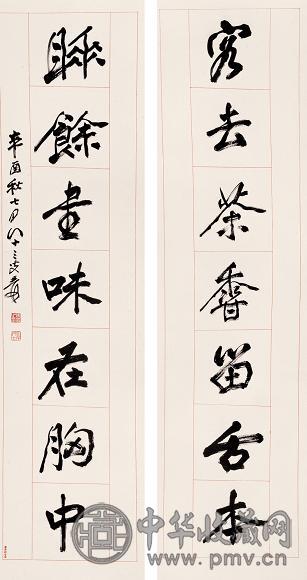 客去茶香留舌本
睡餘書味在胸中
辛酉秋七月八十三叟爰
中华收藏网
www.pmv.cn